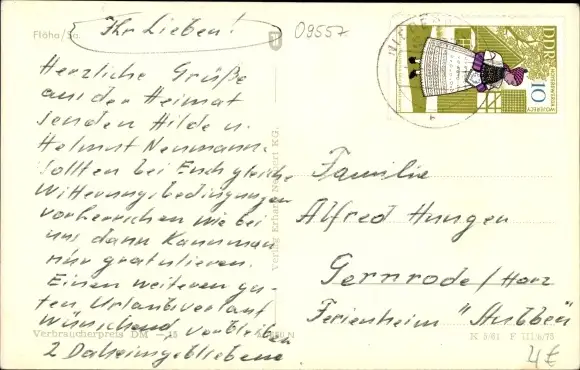 Flöha/Sa.
Ihr Lieben!
09557
Herzliche Grüße
aus der Heimat
senden Hilde u.
Helmut Neumann.
Sollten bei Euch gleiche
Witterungsbedingungen
vorherrschen wie bei
uns dann kann man
nur gratulieren.
Einen weiteren gu-
ten Urlaubsverlauf
wünschend, verbleiben
2 Daheimgebliebene
Verbraucherpreis DM -,15
Verlag Erhard Neubert KG.
DDR
10
Familie
Alfred Hungen
Gernrode/Harz
Ferienheim "Stubben"
4€